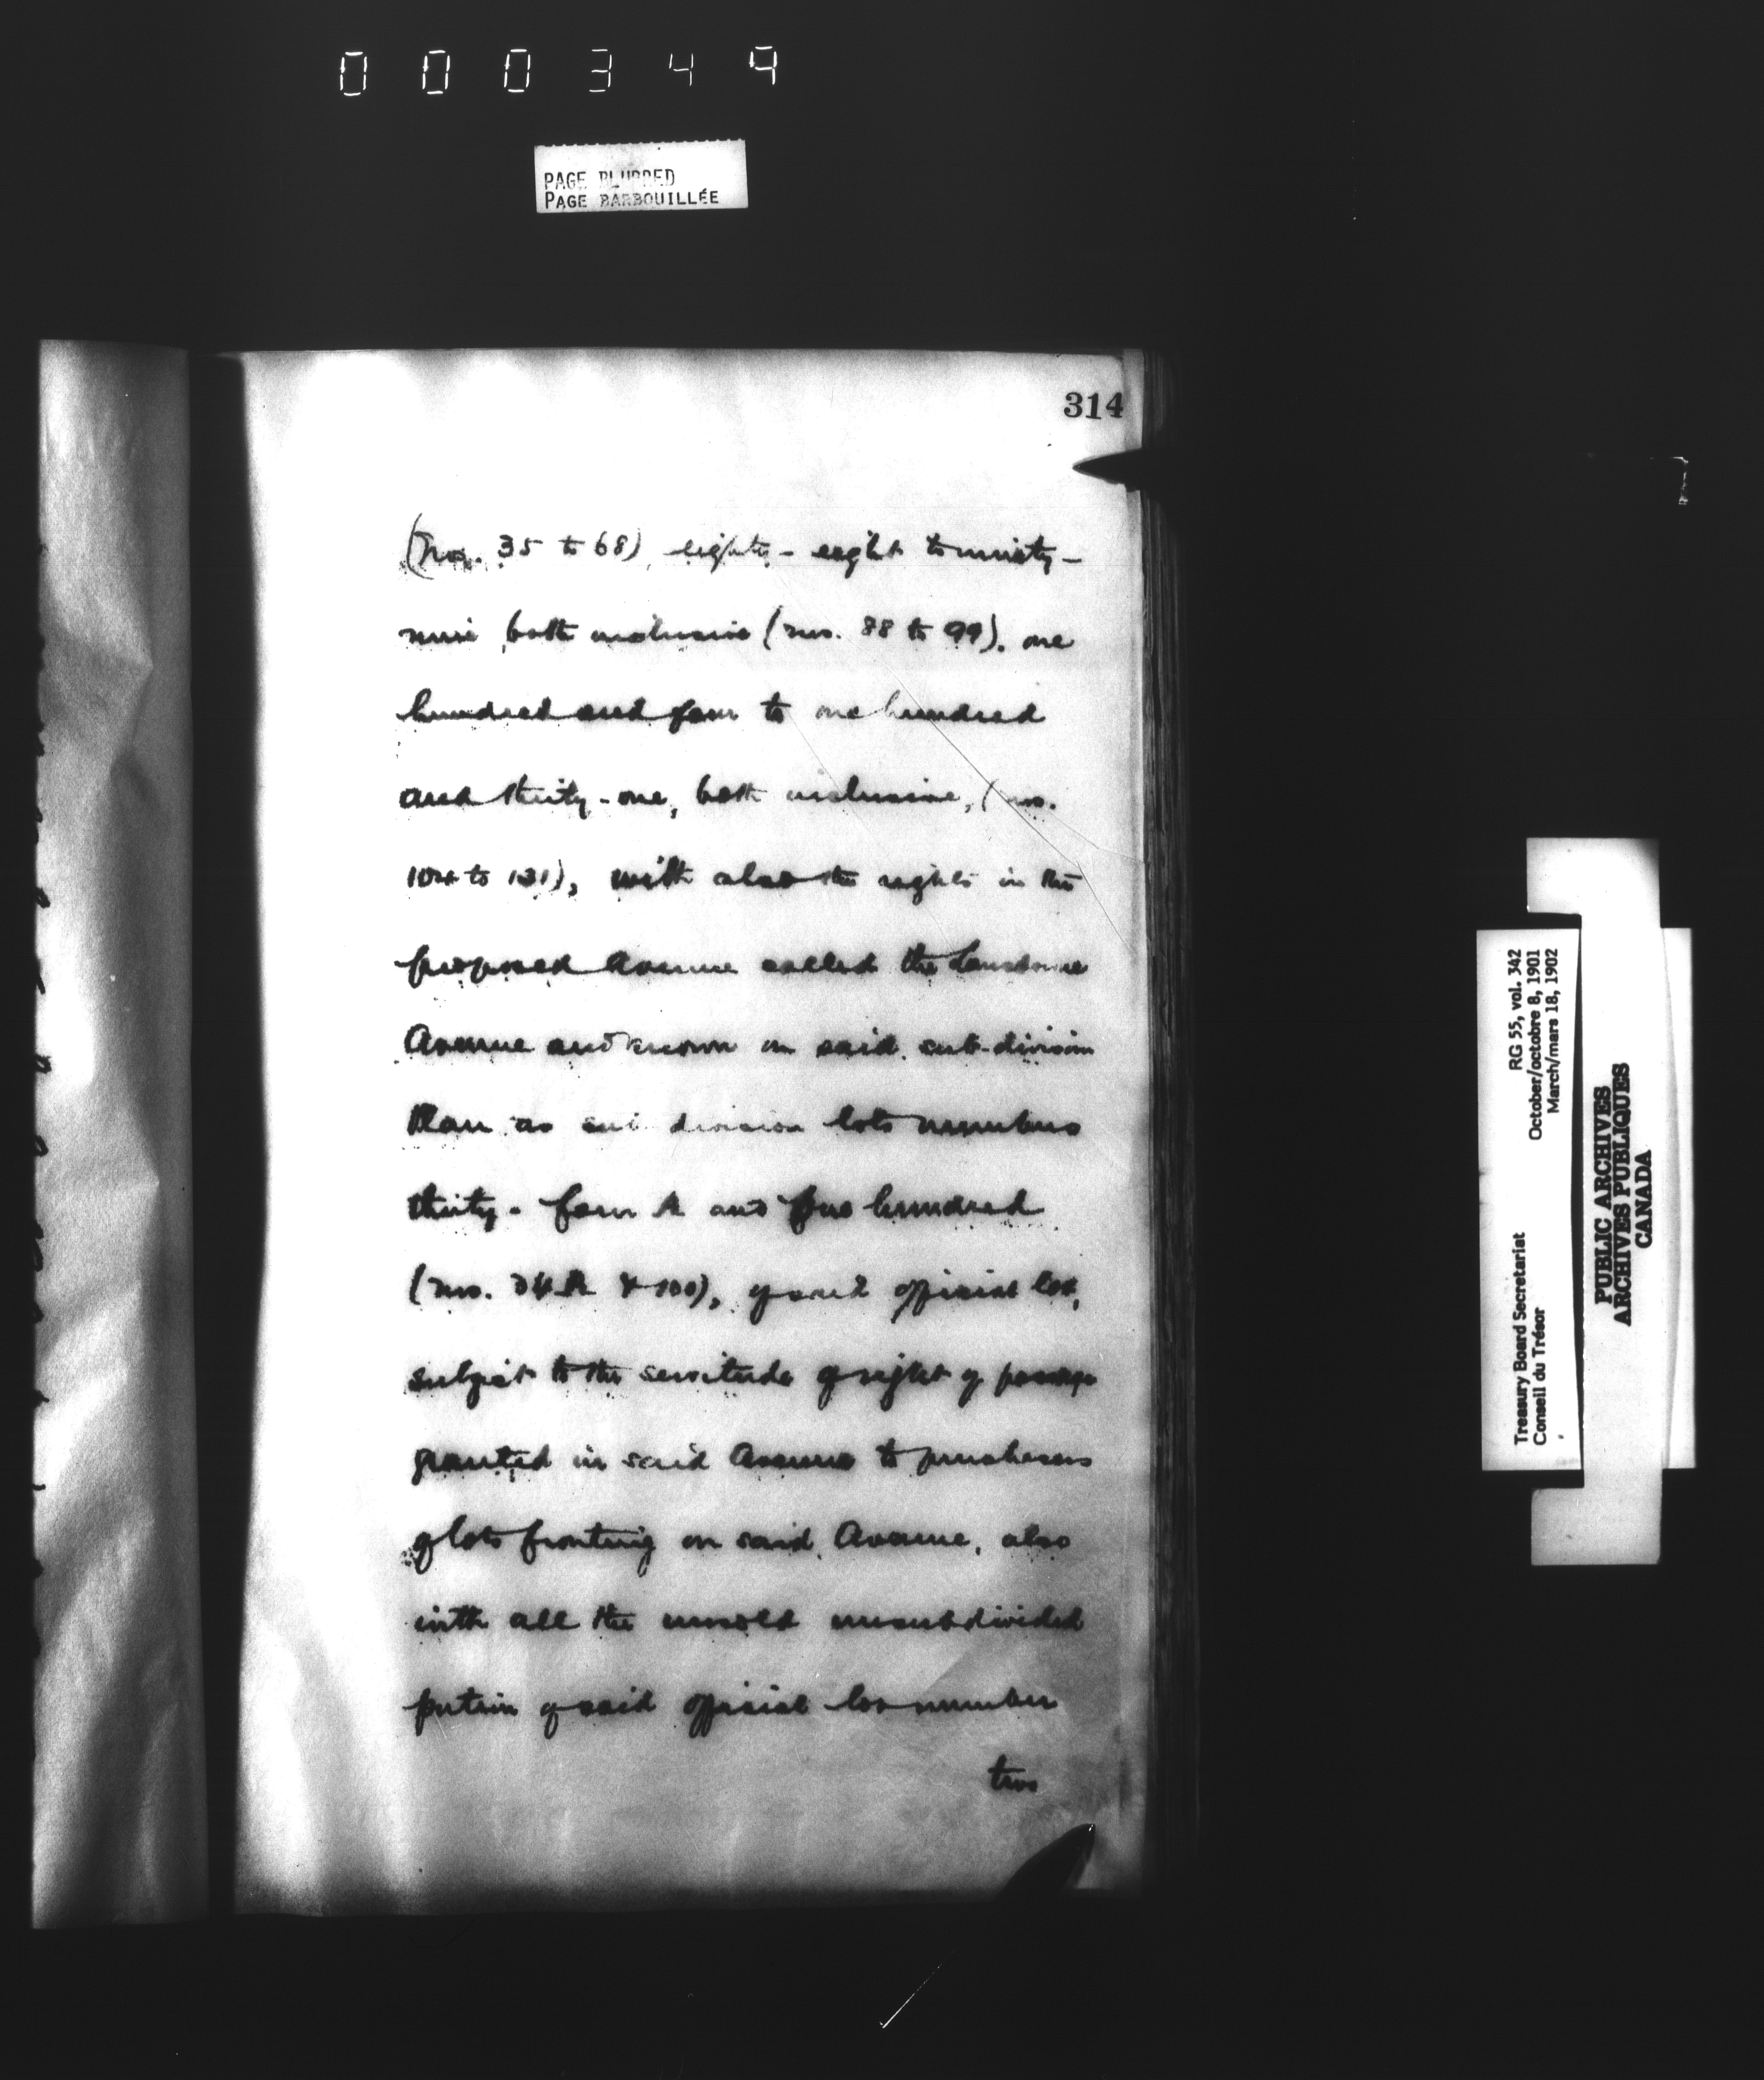 000349
PAGE BLURRED
PAGE BARBOUILLÉE
314
(nos. 35 to 68), eighty-eight to ninety-
nine, both inclusive (nos. 88 to 99), one
hundred and four to one hundred
and thirty-one, both inclusive, (nos.
104 to 131), with also the rights in the
proposed Avenue called the Lansdowne
Avenue and known on said sub-division
Plan as sub division lots numbers
thirty-four A and hundred
(nos. 34 A & 100), of said official lot,
subject to the servitude of right of passage
granted in said Avenue to purchasers
of lots fronting on said Avenue, also
with all the unsold unsubdivided
portion of said official lot number
two
RG 55, vol. 342
October/octobre 8, 1901
March/mars 18, 1902
Treasury Board Secretariat
Conseil du Trésor
PUBLIC ARCHIVES
ARCHIVES PUBLIQUES
CANADA